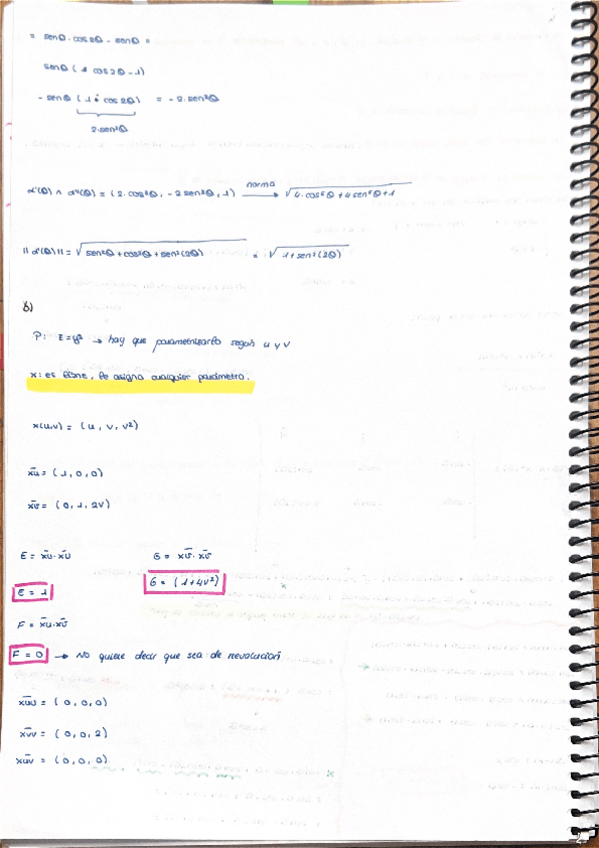 = senθ · cos2θ - senθ =
senθ ( 1 cos2θ - 1)
- senθ ( 1 · cos2θ) = - 2 · sen³θ
2·sen²θ
α'(θ) ∧ α''(θ) = ( 2·cos³θ, - 2 sen³θ, 1) norma √4·cos⁶θ + 4 sen⁶θ + 1
|| α'(θ) || = √sen²θ + cos²θ + sen²(2θ) = √1 + sen²(2θ)
b)
P: z = y² → hay que parametrizarlo según u y v
x: es libre, le asigno cualquier parámetro.
x(u,v) = ( u, v, v²)
x̄u = ( 1, 0, 0)
x̄v = ( 0, 1, 2v)
E = x̄u · x̄u G = x̄v · x̄v
E = 1 G = (1+4v²)
F = x̄u · x̄v
F = 0 → No quiere decir que sea de revolución
x̄uu = ( 0, 0, 0)
x̄vv = ( 0, 0, 2)
x̄uv = ( 0, 0, 0)